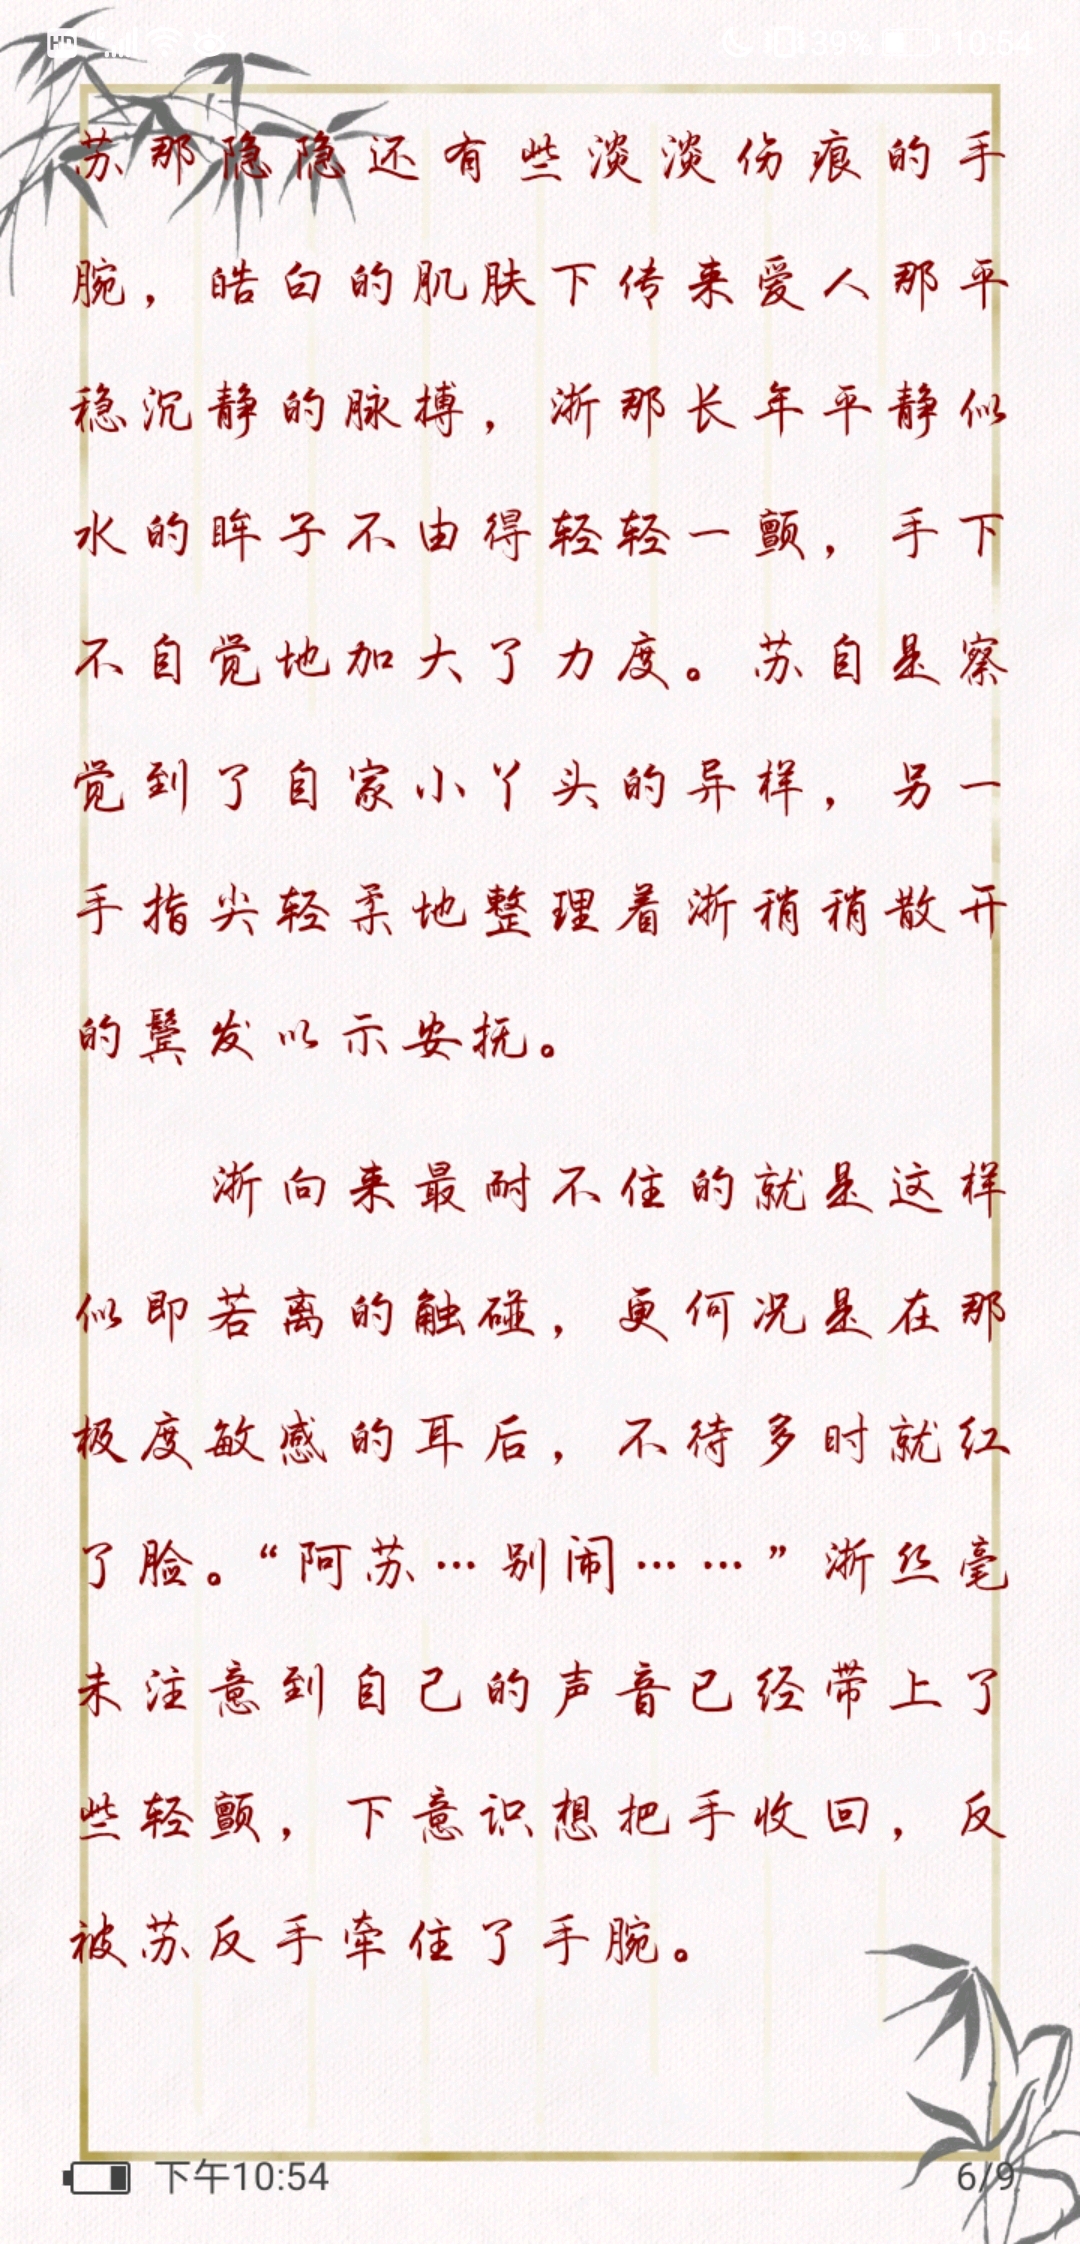 苏那隐隐还有些淡淡伤痕的手
腕，皓白的肌肤下传来爱人那平
稳沉静的脉搏，浙那长年平静似
水的眸子不由得轻轻一颤，手下
不自觉地加大了力度。苏自是察
觉到了自家小丫头的异样，另一
手指尖轻柔地整理着浙稍稍散开
的鬓发以示安抚。
浙向来最耐不住的就是这样
似即若离的触碰，更何况是在那
极度敏感的耳后，不待多时就红
了脸。“阿苏…别闹……”浙丝毫
未注意到自己的声音已经带上了
些轻颤，下意识想把手收回，反
被苏反手牵住了手腕。
下午10:54
6/9